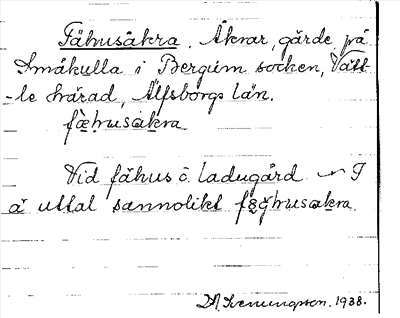 Fähusåkra. Åkrar, gärde, på
Småkulla i Bergum socken, Vätt-
-le härad, Älfsborgs län.
fæ̀husåkra
Vid fähus o. ladugård
uttal sannolikt husåkra
Svenungsson. 1938.